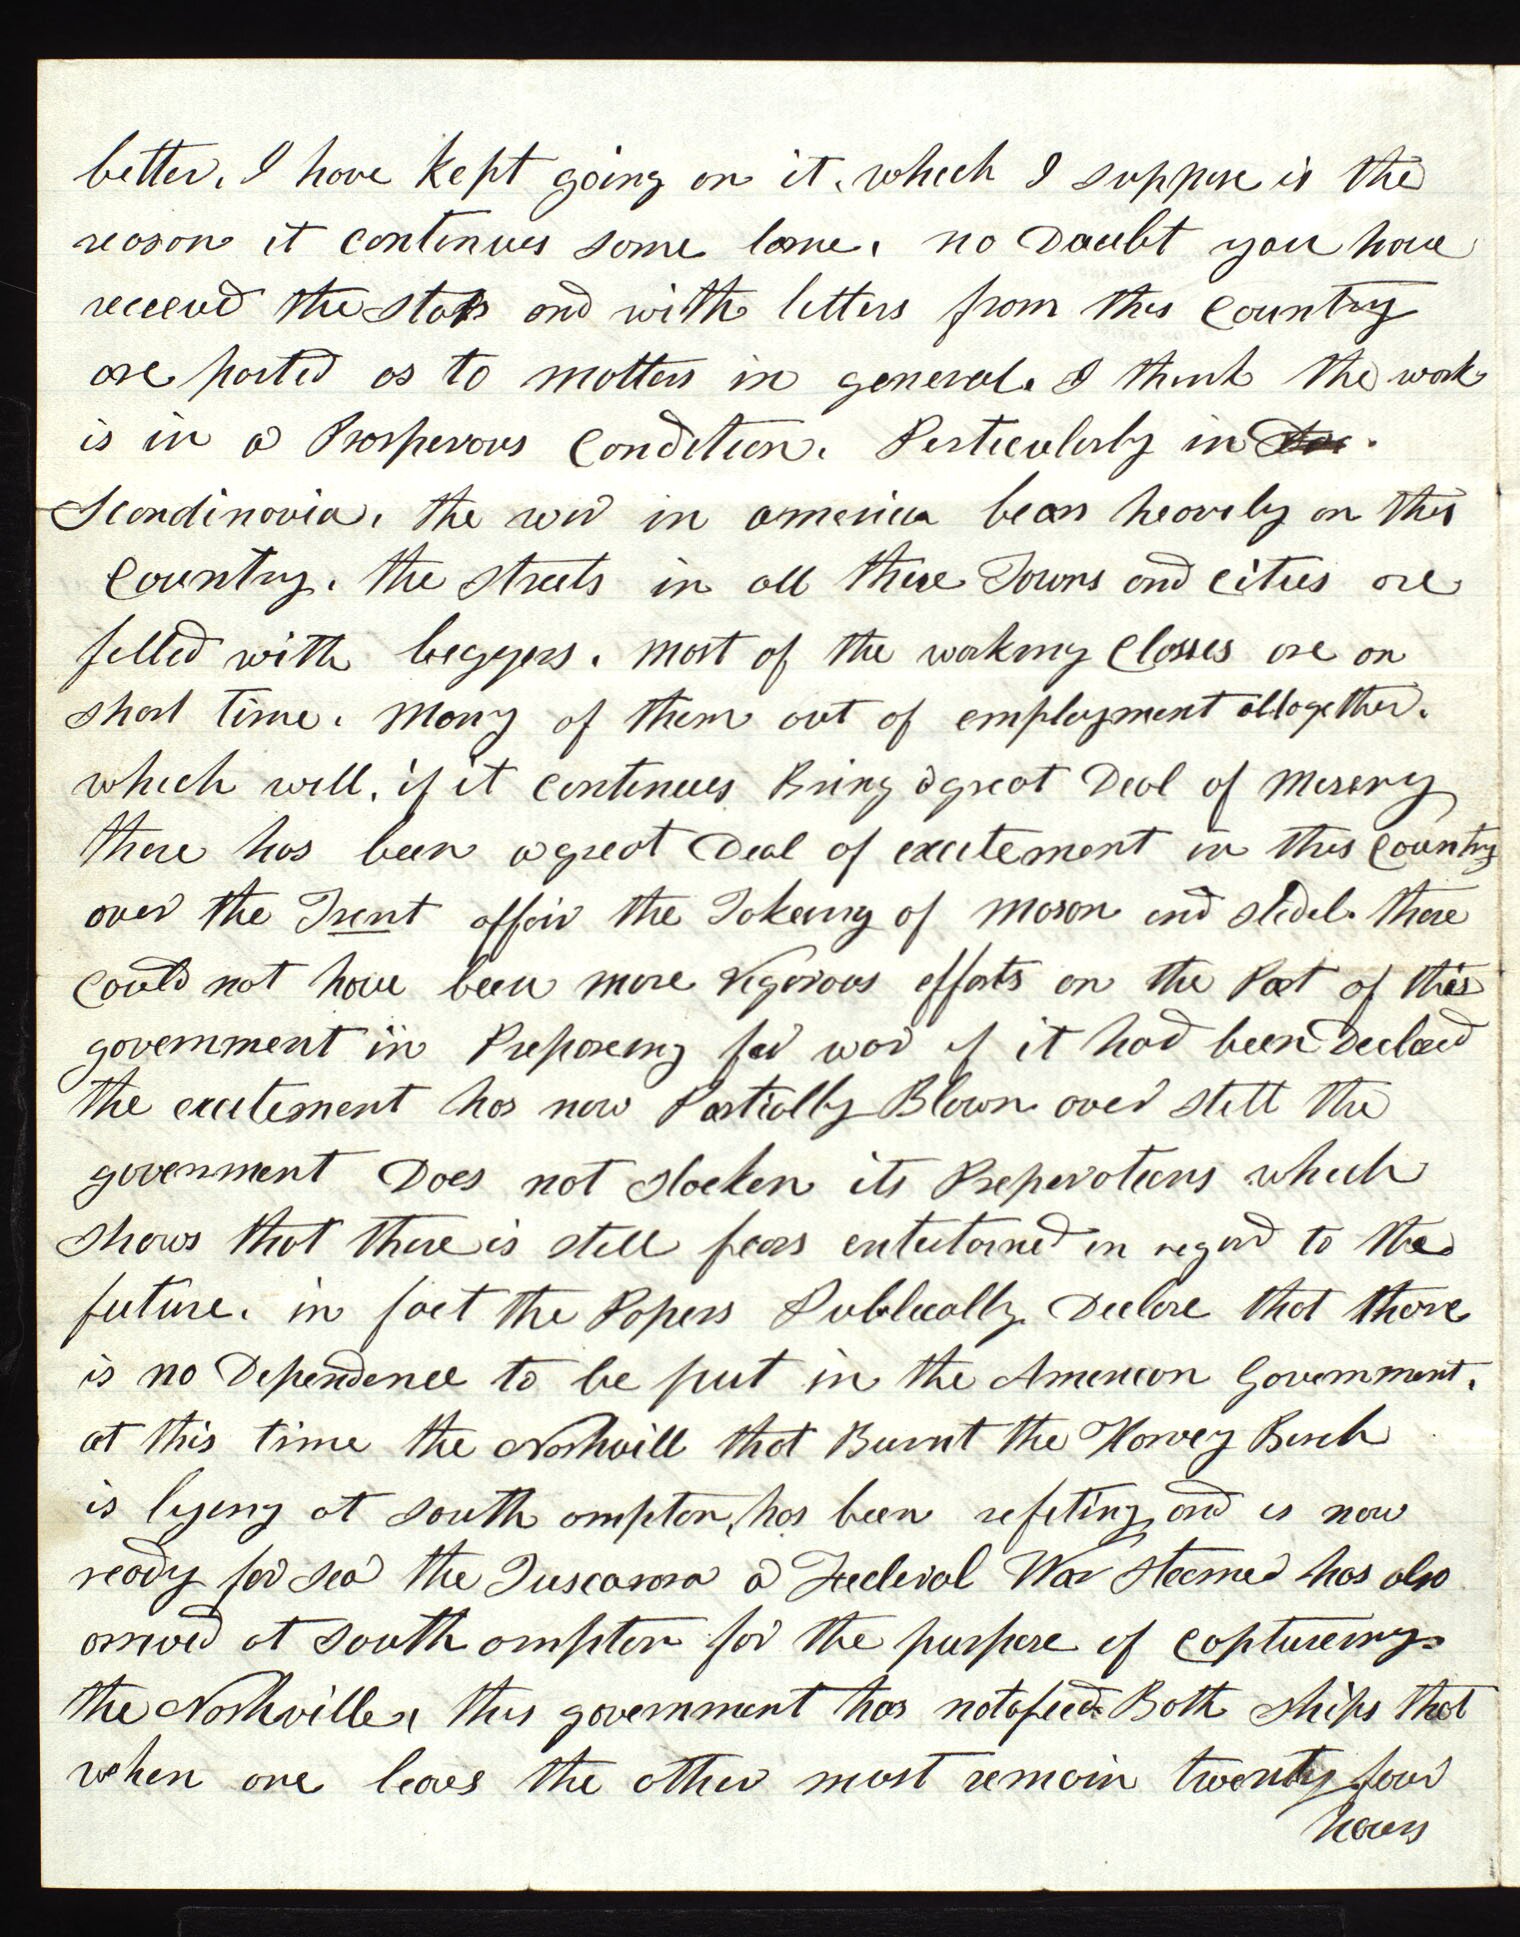 better. I have kept going on it. which I suppose is the
reason it continues some lame. no Doubt you have
received the stars and with letters from this Country
are posted as to matters in general. I think the work
is in a Prosperous Condition. Perticularly in
Scandinavia. the war in america bears heavely on this
Country. the streets in all these Towns and cities are
filled with beggers. most of the working Classes are on
short time. Many of them out of employment alltogether.
which will, if it continues Bring a great Deal of misery
there has been a great Deal of excitement in this Country
over the Trent affair the Takeing of mason and slidel. there
could not have been more vigorous efforts on the Part of this
government in Prepareing for war if it had been Declared
the excitement has now Partially Blown over still the
government Does not slacken its Preperations which
shows that there is still fears entertained in regard to the
future. in fact the Papers Publically Declare that there
is no Dependence to be put in the American Government.
at this time the Nashvill that Burnt the Harvey Birch
is lyeing at South ampton, has been refiting and is now
ready for sea the Tuscarora a Feederal War steamer has also
arrived at South ampton for the purpose of captureing
the Nashville. this government has notafied Both ships that
when one leaves the other must remain twenty four
hours